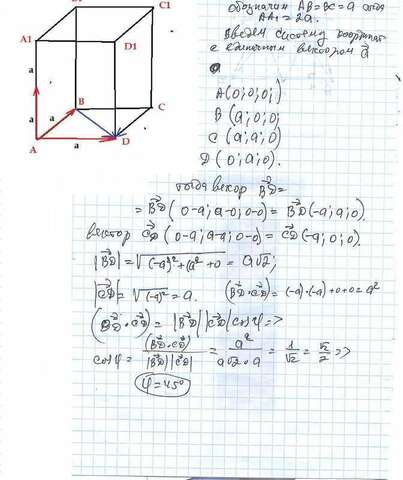 C1
A1
D1
a
a
B
C
a
a
A
D
обозначим AB=BC=a тогда
AA1=2a.
Введем систему координат
с единичным вектором a⃗
A(0;0;0;)
B(a;0;0;
C(a;a;0)
D(0;a;0).
тогда вектор B⃗D=
=B⃗D(0-a;a-0;0-0)=B⃗D(-a;a;0).
вектор C⃗D(0-a;a-a;0-0)=C⃗D(-a;0;0).
|B⃗D|=√(-a)²+(a²+0=a√2;
|C⃗D|=√(-a)²=a. (B⃗D·C⃗D)=(-a)·(-a)+0+0=a²
(B⃗D·C⃗D)=|B⃗D||C⃗D|cosφ=>
cosφ=(B⃗D·C⃗D)/|B⃗D||C⃗D|=a²/a√2·a=1/√2=√2/2=>
φ=45°